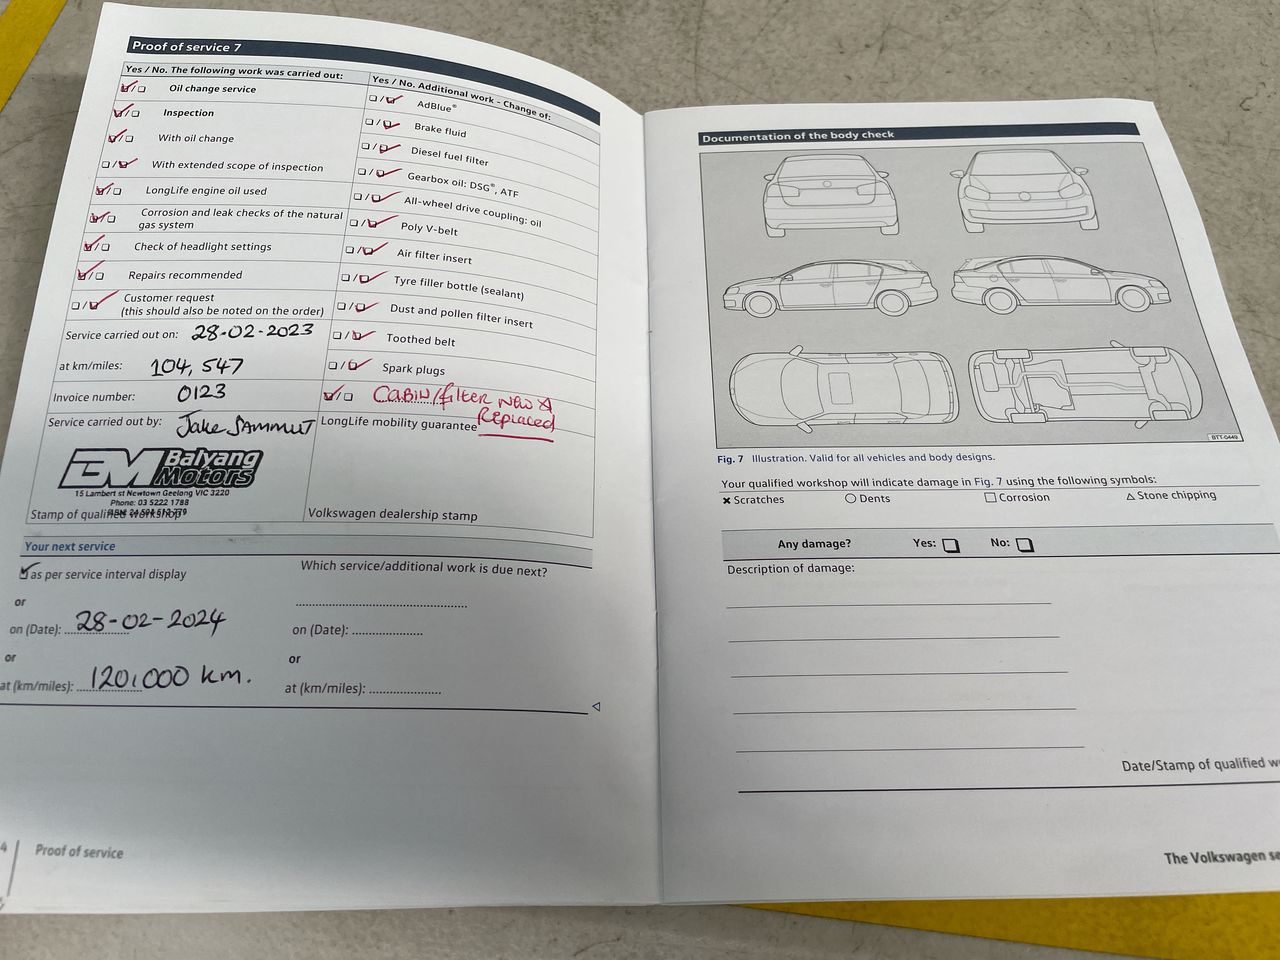 Proof of service 7
Yes / No. The following work was carried out:
Oil change service
Inspection
With oil change
With extended scope of inspection
LongLife engine oil used
Corrosion and leak checks of the natural
gas system
Check of headlight settings
Repairs recommended
Customer request
(this should also be noted on the order)
Service carried out on: 28-02-2023
at km/miles: 104,547
Invoice number: 0123
Service carried out by: Jake SAMMUT
BM Balyang
Motors
15 Lambert st Newtown Geelong VIC 3220
Phone: 03 5222 1788
Stamp of qualified workshop
Yes / No. Additional work - Change of:
AdBlue®
Brake fluid
Diesel fuel filter
Gearbox oil: DSG®, ATF
All-wheel drive coupling: oil
Poly V-belt
Air filter insert
Tyre filler bottle (sealant)
Dust and pollen filter insert
Toothed belt
Spark plugs
CABIN/filter NEW &
Replaced
LongLife mobility guarantee
Volkswagen dealership stamp
Your next service
as per service interval display
or
on (Date): 28-02-2024
or
at (km/miles): 120,000 km.
Which service/additional work is due next?
on (Date):
or
at (km/miles):
4
Proof of service
Documentation of the body check
BTT-0449
Fig. 7 Illustration. Valid for all vehicles and body designs.
Your qualified workshop will indicate damage in Fig. 7 using the following symbols:
Scratches Dents Corrosion Stone chipping
Any damage? Yes: No:
Description of damage:
Date/Stamp of qualified w
The Volkswagen se